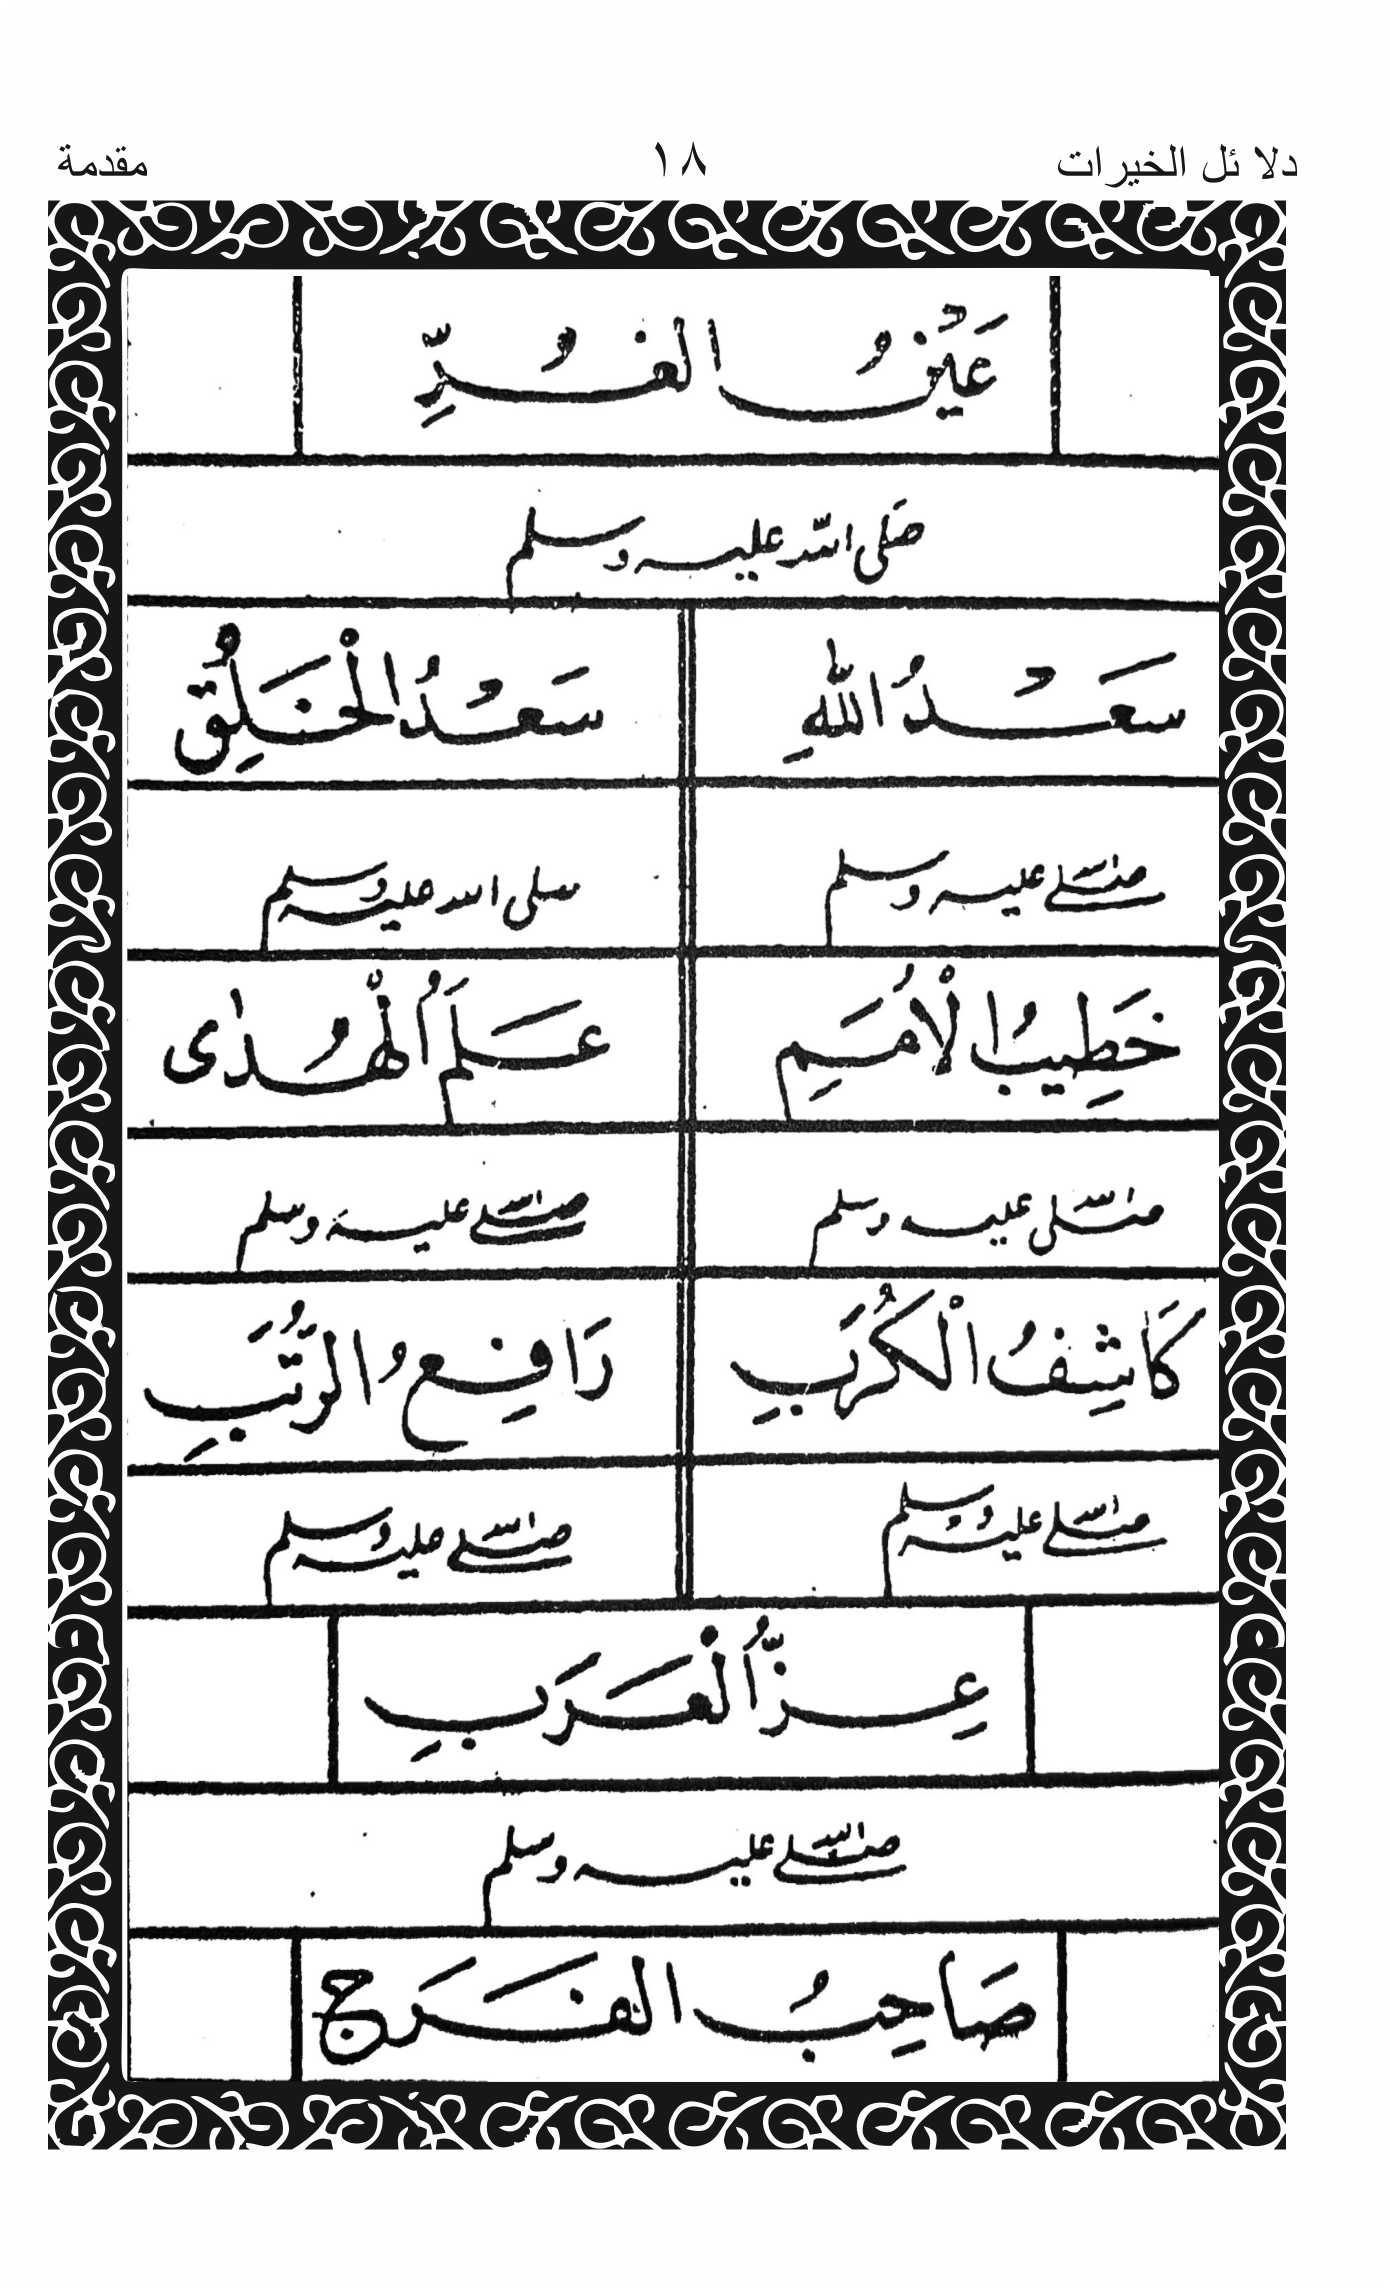 دلا ئل الخيرات ١٨ مقدمة
عَيْنُ الغُرِّ
صَلى اللّٰه عليه وسلم
سَعْدُ اللهِ سَعْدُ الْخَلْقِ
صلى الله عليه وسلم صلى الله عليه وسلم
خَطِيبُ الْأُمَمِ عَلَمُ الْهُدٰى
صلى الله عليه وسلم صلى الله عليه وسلم
كَاشِفُ الْكُرَبِ رَافِعُ الرُّتَبِ
صلى الله عليه وسلم صلى الله عليه وسلم
عِزُّ الْعَرَبِ
صلى الله عليه وسلم
صَاحِبُ الفَرَج